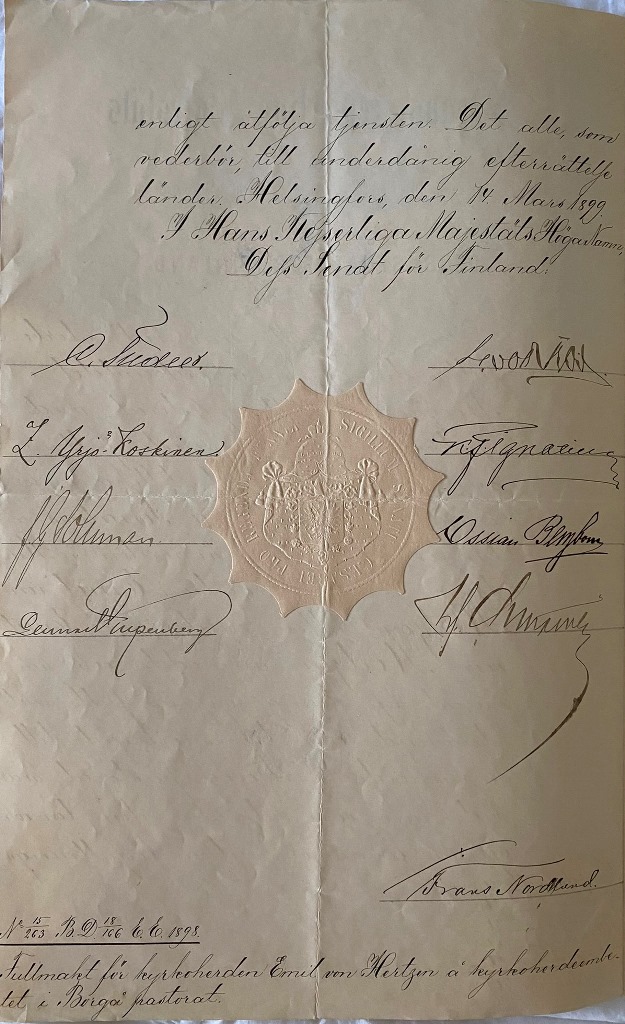 enligt åtfölja tjensten. Det alle, som
vederbör, till underdånig efterrättelse
länder. Helsingfors, den 14 Mars 1899.
I Hans Kejserliga Majestäts Höga Namn,
Dess Senat för Finland:
C. Tudeer.
Z. Yrjö-Koskinen.
SIGILLUM SENATU
Ossian Bergbom
Frans Nordlund.
No 15/263 B.D 18/166 E.E. 1898.
Fullmakt för kyrkoherden Emil von Hertzen å kyrkoherdeembe-
tet i Borgå pastorat.